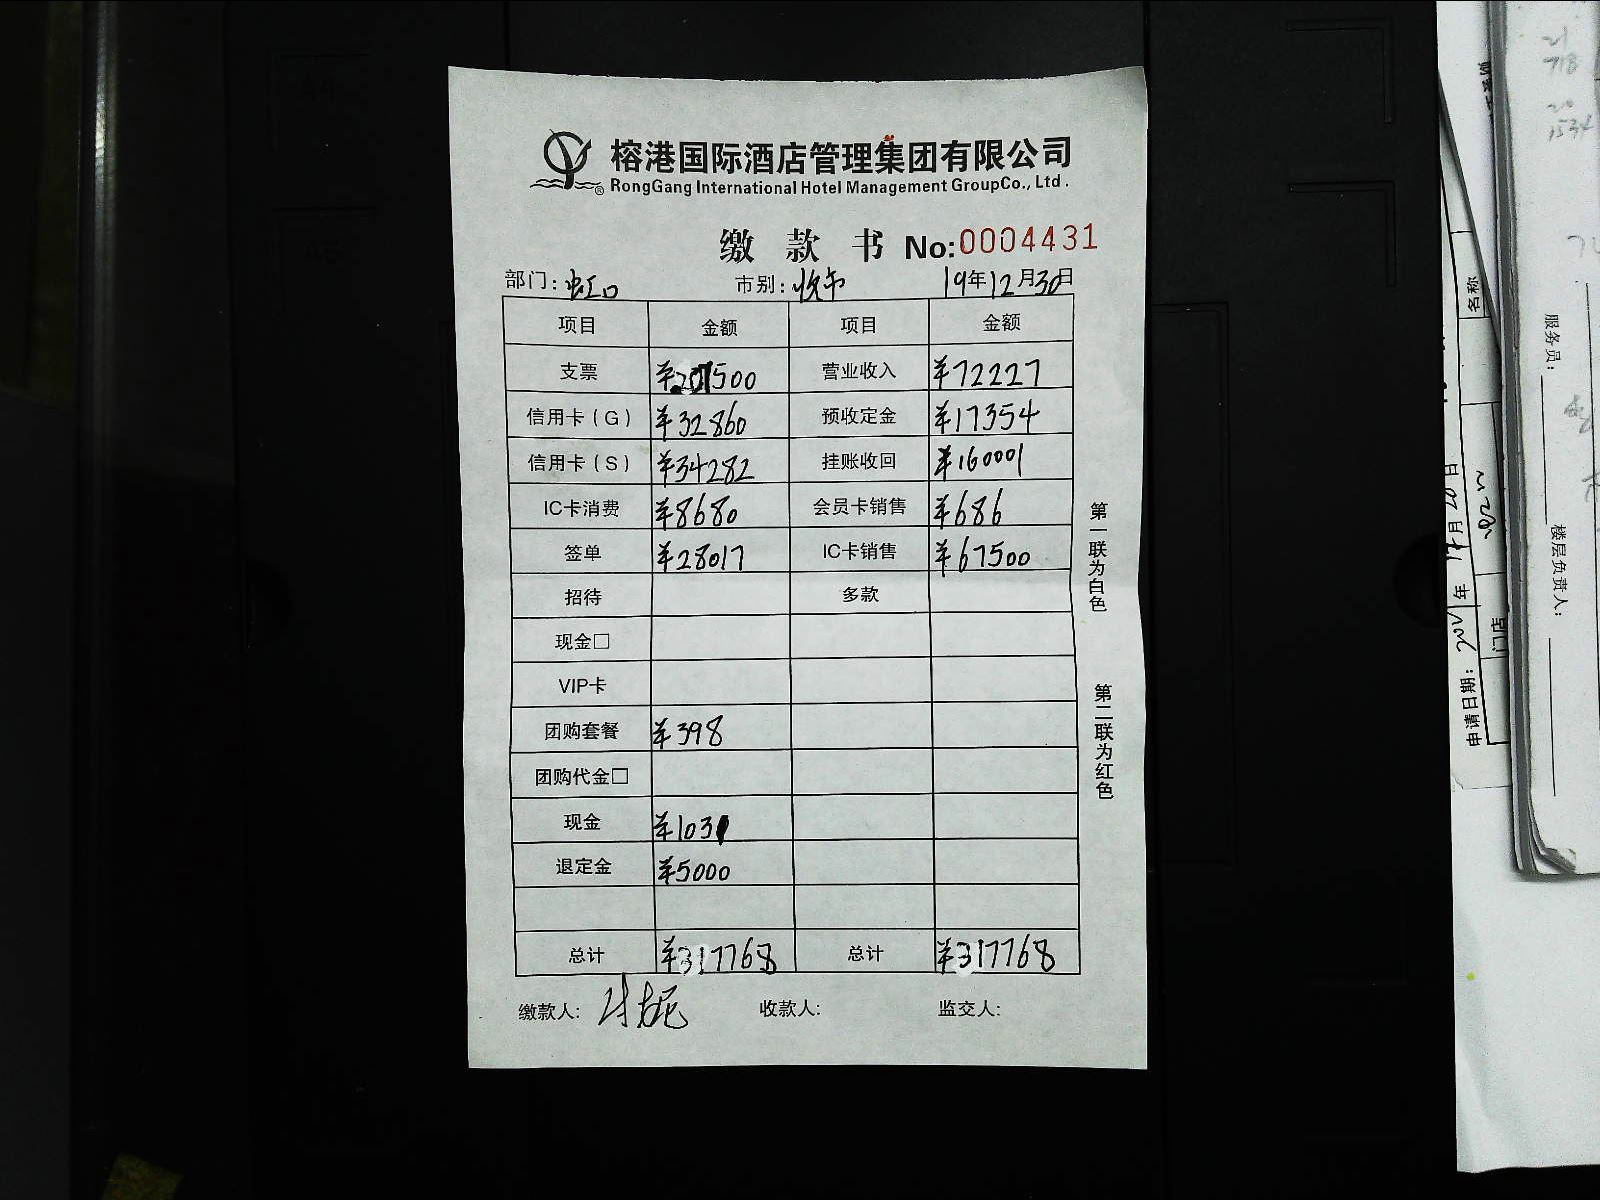 榕港国际酒店管理集团有限公司
® RongGang International Hotel Management GroupCo., Ltd .
缴 款 书 No:0004431
部门: 虹口 市别: 收市 19年12月30日
项目 金额 项目 金额
支票 ¥207500 营业收入 ¥72227
信用卡(G) ¥32860 预收定金 ¥17354
信用卡(S) ¥34282 挂账收回 ¥160001
IC卡消费 ¥8680 会员卡销售 ¥686
签单 ¥28017 IC卡销售 ¥67500
招待 多款
现金□
VIP卡
团购套餐 ¥398
团购代金□
现金 ¥1031
退定金 ¥5000
总计 ¥317768 总计 ¥317768
缴款人: 收款人: 监交人:
第一联为白色
第二联为红色
名称
门店
申请日期: 年 月 日
服务员:
楼层负责人:
718
1534